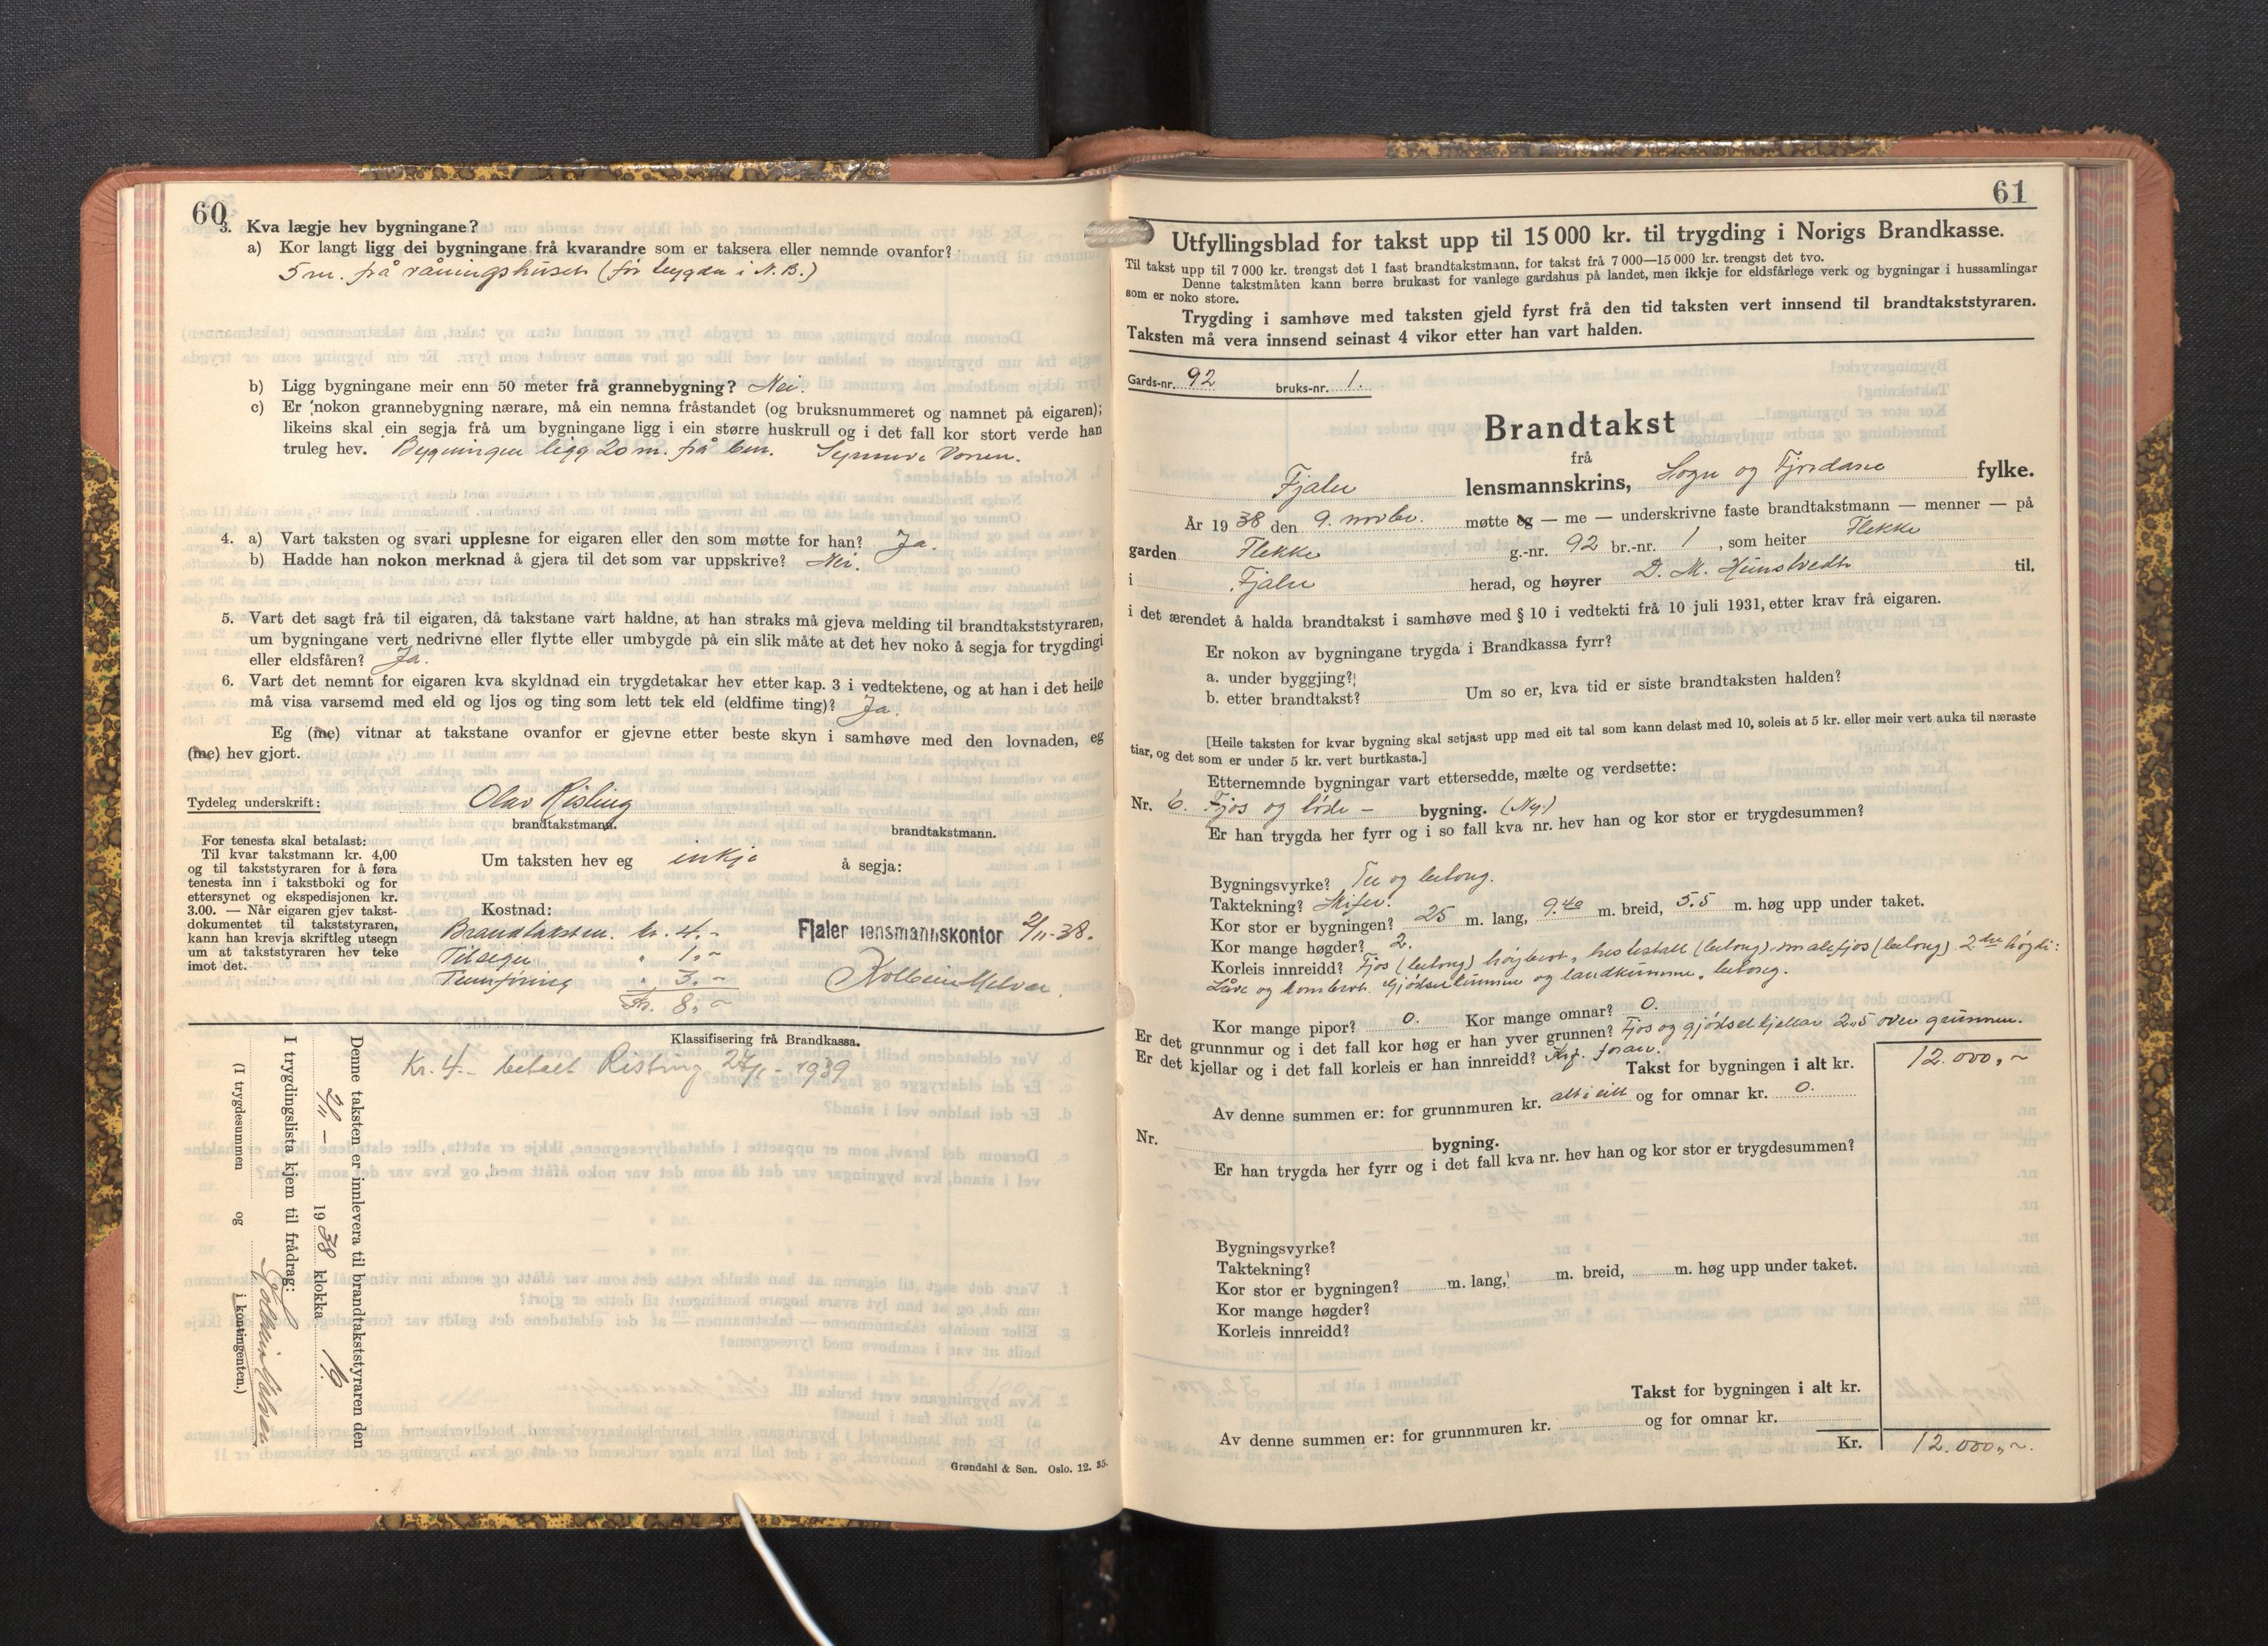 60
3. Kva lægje hev bygningane?
a) Kor langt ligg dei bygningane frå kvarandre som er taksera eller nemnde ovanfor?
5 m. frå våningshuset (för trygda i N.B.)
b) Ligg bygningane meir enn 50 meter frå grannebygning? Nei.
c) Er nokon grannebygning nærare, må ein nemna fråstandet (og bruksnummeret og namnet på eigaren);
likeins skal ein segja frå um bygningane ligg i ein større huskrull og i det fall kor stort verde han
truleg hev. Bygningen ligg 20 m. frå
4. a) Vart taksten og svari upplesne for eigaren eller den som møtte for han? Ja.
b) Hadde han nokon merknad å gjera til det som var uppskrive? Nei.
5. Vart det sagt frå til eigaren, då takstane vart haldne, at han straks må gjeva melding til brandtakststyraren,
um bygningane vert nedrivne eller flytte eller umbygde på ein slik måte at det hev noko å segja for trygdingi
eller eldsfåren? Ja.
6. Vart det nemnt for eigaren kva skyldnad ein trygdetakar hev etter kap. 3 i vedtektene, og at han i det heile
må visa varsemd med eld og ljos og ting som lett tek eld (eldfime ting)? Ja.
Eg (me) vitnar at takstane ovanfor er gjevne etter beste skyn i samhøve med den lovnaden, eg
(me) hev gjort.
Tydeleg underskrift: Olav Risting
brandtakstmann. brandtakstmann.
For tenesta skal betalast:
Til kvar takstmann kr. 4,00
og til takststyraren for å føra
tenesta inn i takstboki og for
ettersynet og ekspedisjonen kr.
3.00. — Når eigaren gjev takst-
dokumentet til takststyraren,
kann han krevja skriftleg utsegn
um at takststyraren hev teke
imot det.
Um taksten hev eg inkje å segja:
Kostnad:
Brandtakstm. kr. 4.-
" 1.-
" 3.-
Kr. 8,-
Fjaler lensmannskontor 21/11-38.
Kolbein Melvær
Klassifisering frå Brandkassa.
Kr. 4.- betalt Risting 1939
Denne taksten er innlevera til brandtakststyraren den
21/11 - 1938 klokka 19
I trygdingslista kjem til frådrag:
Kolbein Melvær
(I trygdesummen og i kontingenten.)
Grøndahl & Søn. Oslo. 12. 35.
61
Utfyllingsblad for takst upp til 15 000 kr. til trygding i Norigs Brandkasse.
Til takst upp til 7 000 kr. trengst det 1 fast brandtakstmann, for takst frå 7 000—15 000 kr. trengst det tvo.
Denne takstmåten kann berre brukast for vanlege gardshus på landet, men ikkje for eldsfårlege verk og bygningar i hussamlingar
som er noko store.
Trygding i samhøve med taksten gjeld fyrst frå den tid taksten vert innsend til brandtakststyraren.
Taksten må vera innsend seinast 4 vikor etter han vart halden.
Gards-nr. 92 bruks-nr. 1.
Brandtakst
frå
Fjaler lensmannskrins, Sogn og Fjordane fylke.
År 1938 den 9. novbr. møtte eg — me — underskrivne faste brandtakstmann — menner — på
garden Flekke g.-nr. 92 br.-nr. 1, som heiter Flekke
i Fjaler herad, og høyrer D. M. Hunstvedt til,
i det ærendet å halda brandtakst i samhøve med § 10 i vedtekti frå 10 juli 1931, etter krav frå eigaren.
Er nokon av bygningane trygda i Brandkassa fyrr?
a. under byggjing?
b. etter brandtakst? Um so er, kva tid er siste brandtaksten halden?
[Heile taksten for kvar bygning skal setjast upp med eit tal som kann delast med 10, soleis at 5 kr. eller meir vert auka til næraste
tiar, og det som er under 5 kr. vert burtkasta.]
Etternemnde bygningar vart ettersedde, mælte og verdsette:
Nr. 6. Fjos og löde - bygning. (Ny.)
Er han trygda her fyrr og i so fall kva nr. hev han og kor stor er trygdesummen?
Bygningsvyrke? Tre og betong.
Taktekning? Skifer.
Kor stor er bygningen? 25 m. lang, 9.40 m. breid, 5.5 m. høg upp under taket.
Kor mange høgder? 2.
Korleis innreidd? Fjos (betong) , hestestall (betong), smalefjos (betong). 2dre högdi:
Låve og kornbrot. Gjödselkummer og landkumme, betong.
Kor mange pipor? 0. Kor mange omnar? 0.
Er det grunnmur og i det fall kor høg er han yver grunnen? Fjos og gjödselkjellar 2.5 over grunnen.
Er det kjellar og i det fall korleis er han innreidd? foran.
Takst for bygningen i alt kr. 12.000,-
Av denne summen er: for grunnmuren kr. alt i eitt og for omnar kr. 0.
Nr. bygning.
Er han trygda her fyrr og i det fall kva nr. hev han og kor stor er trygdesummen?
Bygningsvyrke?
Taktekning?
Kor stor er bygningen? m. lang, m. breid, m. høg upp under taket.
Kor mange høgder?
Korleis innreidd?
Takst for bygningen i alt kr.
Av denne summen er: for grunnmuren kr. og for omnar kr.
Kr. 12.000,-.